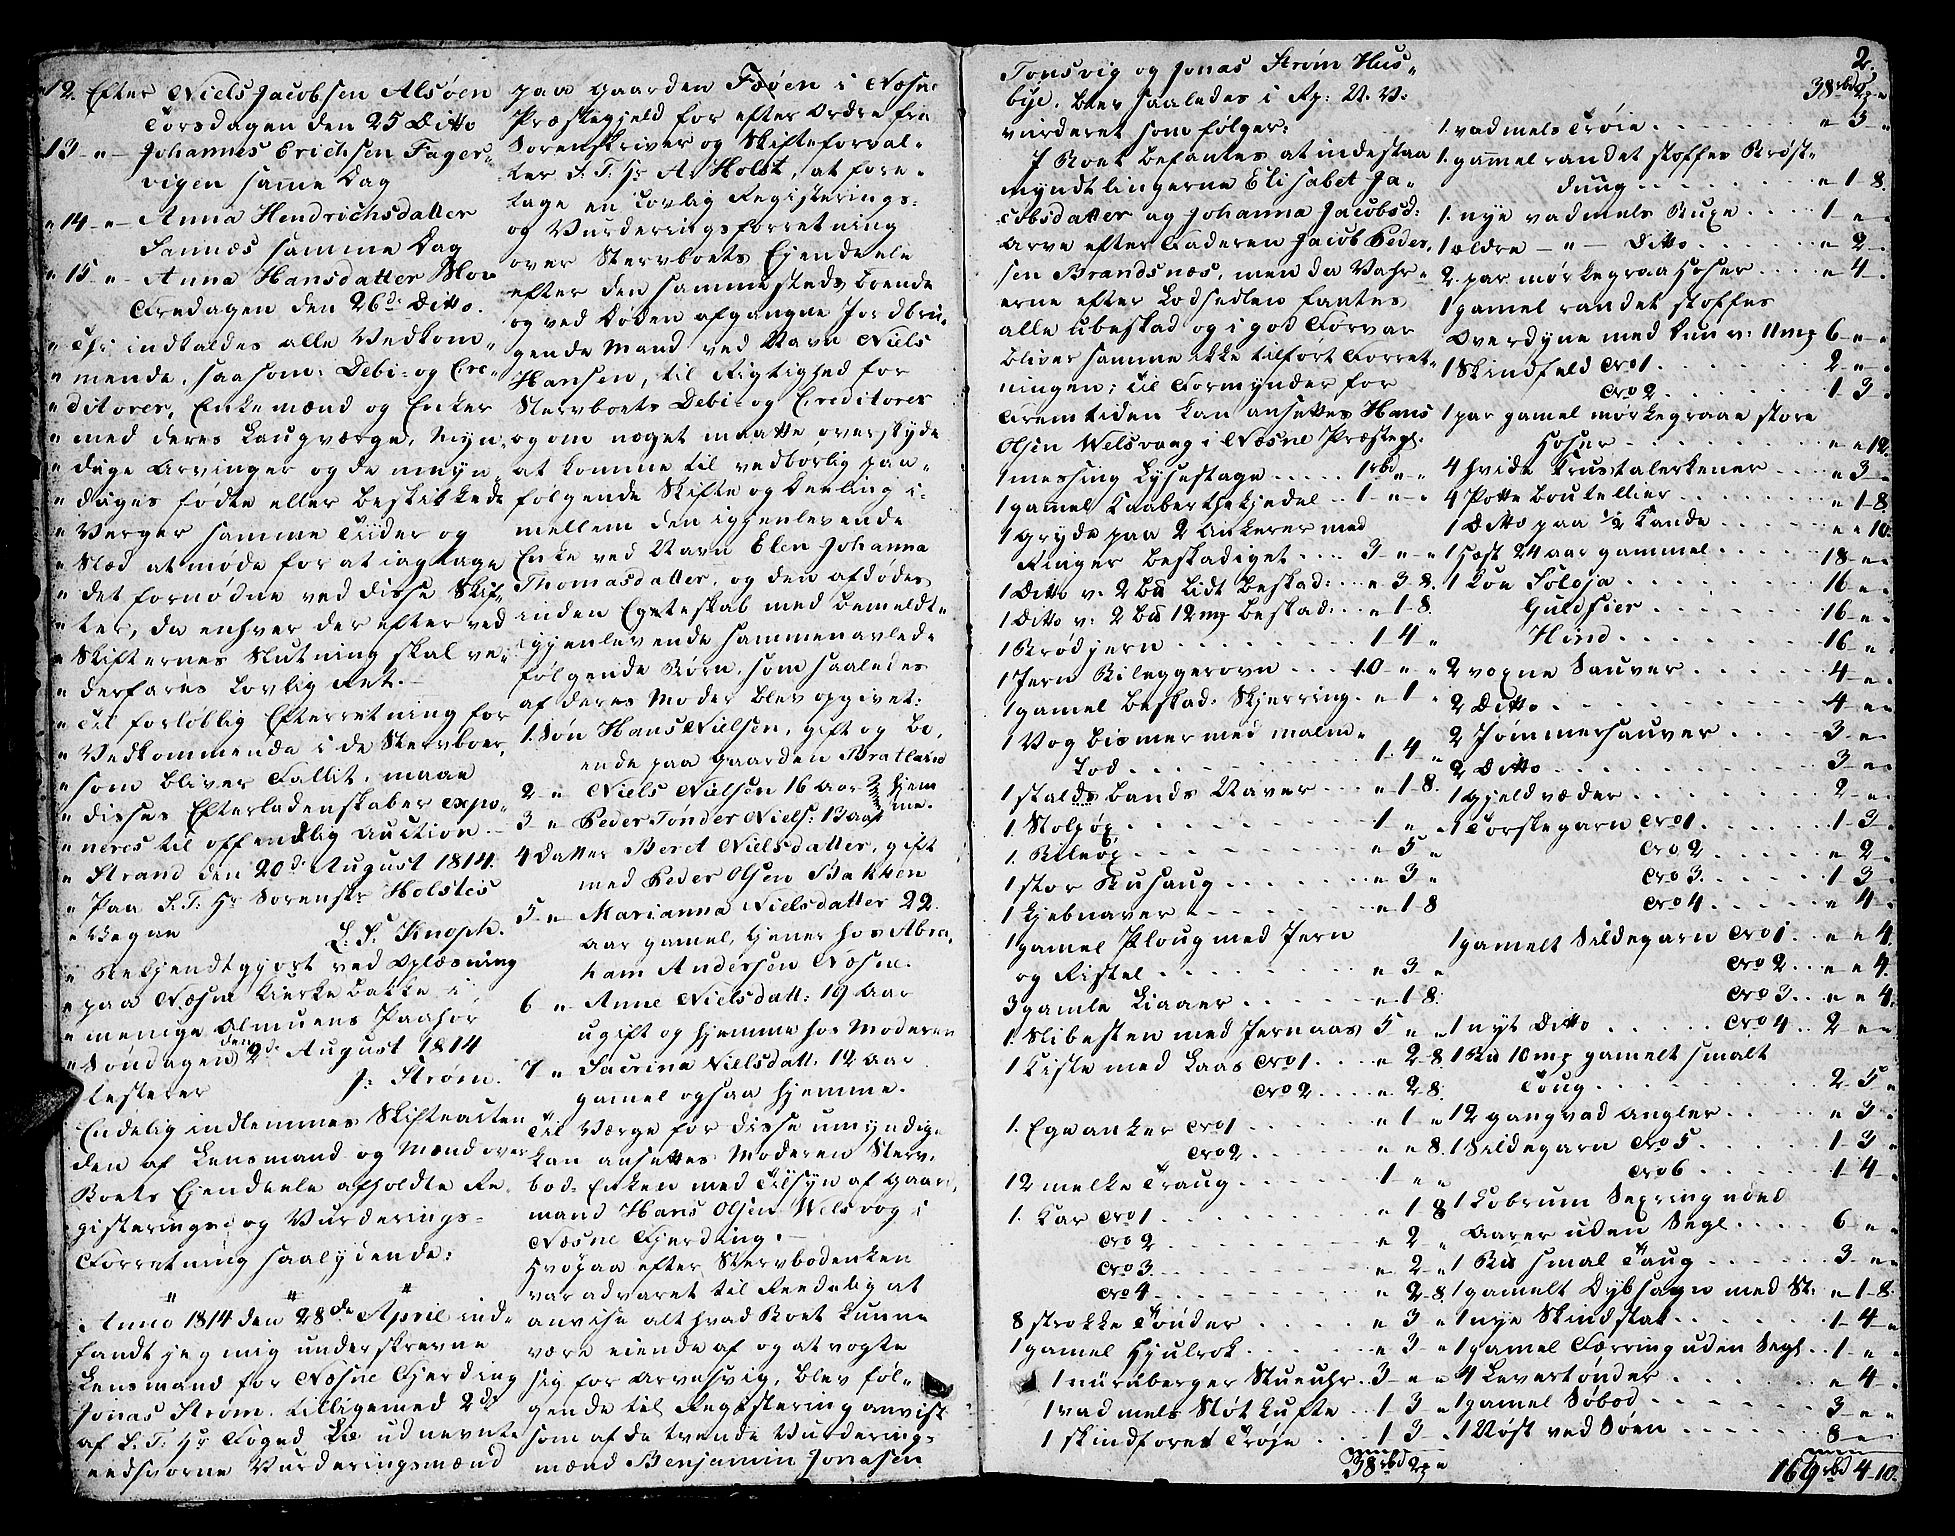 "12. Efter Niels Jacobsen Alsøen
Torsdagen den 25 Ditto
13 - " - Johannes Erichsen Fager-
vigen samme Dag
" 14 - " - Anna Hendrichsdatter
Sannæs samme Dag
" 15 - " - Anna Hansdatter Moe
Fredagen den 26de Ditto.
" Thi indkaldes alle Vedkom-
" mende, saasom: Debi- og Cre-
" ditorer, Enkemænd og Enker
" med deres Laugværge, Myn-
" dige Arvinger og de umyn-
" diges fødte eller beskikkede
" Verger samme Tiider og
" Stæd at møde for at iagtage
" det fornødne ved disse Skif-
" ter, da enhver der efter ved
" Skifternes Slutning skal ve-
" derfares Lovlig Ret.-
" Til forløblig Efterretning for
" Vedkommende i de Stervboer,
" som bliver Fallit, maae
" disses Efterladenskaber expo-
" neres til offendtlig Auction -
" Strand den 20de August 1814.
" Paa S. T. Hr Sorenskr Holstes
" Vegne
L. S. Knoph.
" Bekjendtgjort ved Oplæsning
" paa Næsne Kierke Bakke i
" menige Almuens Paahør
" Søndagen den 2de August 1814
" testerer J: Strøm.
Endelig indlemmes Skifteacten
den af Lensmand og Mænd over
Boets Ejendeele afholdte Re-
gisterings- og Vurderings-
Forretning saalydende:
" " "
Anno 1814 den 28de April ind-
fandt jeg mig underskrevne
Lensmand for Næsne Fjerding
Jonas Strøm, tilligemed 2de
af S. T. Hr Foged Lie udnevnte
eedsvorne Vurderingsmænd
paa Gaarden Føøen i Næsne
Præstegjeld for efter Ordre fra
Sorenskriver og Skifteforval-
ter S. T. Hr A: Holst, at fore-
tage en Lovlig Registerings-
og Vurderingsforretning
over Stervboets Ejendeele
efter den sammesteds boende
og ved Døden afgangne Jordbru-
gende Mand ved Navn Niels
Hansen, til Rigtighed for
Stervboets Debi- og Creditorer
og om noget maatte overskyde
at komme til vedborlig paa-
følgende Skifte og Deeling i-
mellem den igjenlevende
Enke ved Navn Elen Johanna
Thomasdatter, og den afdødes
inden Egteskab med bemeldte
igjenlevende sammenavlede
følgende Børn, som saaledes
af deres Moder blev opgivet:
1. Søn Hans Nielsen, gift og bo-
ende paa Gaarden Bratland
2 - " Niels Nielsen 16 Aar } hjem-
3 - " Peder Tønder Niels: 13 Aar } me.
4 Datter Beret Nielsdatter, gift
med Peder Olsen Bakken
5 - " Marianna Nielsdatter 22
Aar gamel, tjener hos Abra-
ham Andersen Næsne.
6 - " Anne Nielsdatt: 19 Aar
ugift og hjemme hos Moderen
7 - " Sacrina Nielsdatt: 12 Aar
gamel ogsaa hjemme.
Til Værge for disse umyndige
kan ansettes Moderen Sterv-
bod-Enken med Tilsyn af Gaard-
mand Hans Olsen Welsvog i
Næsne Fjerding.-
Hvopaa efter Stervbodenken
var advaret til Reedelig at
anvise alt hvad Boet kunne
være eiende af og at vogte
sig for Arvesvig, blev føl-
gende til Registering anvist
som af de tvende Vurderings-
mænd Benjamin Jonesen
Tonsvig og Jonas Strøm Hus-
bye, blev saaledes i Rp: V. V.
vurderet som følger:
I Boet befantes at indestaa
Myndtlingerne Elisabet Ja-
cobsdatter ag Johanna Jacobsd:
Arve efter Faderen Jacob Peder-
sen Brandsnæs, men da Vahr-
erne efter Lodsedlen fantes
alle ubeskad og i god Forvar
bliver samme ikke tilført Forret-
ningen; Til Formynder for
Fremtiden kan ansettes Hans
Olsen Welsvaag i Næsne Præstegl:
1 messing Lysestage ..... 1rbd " - "
1 gamel Kaaberthekjedel .. 1 - " - "
1 Gryde paa 2 Ankerer med
Ringer beskadiget .... 3 - " - "
1 Ditto v. 2 bu Lidt beskad: ... " 3 - 8.
1 Ditto v: 2 bu 12 mg beskad: .. " 1 - 8
1 Brødjern ........ 1 4 "
1 Jern Bileggerovn .... 10 - " - "
1 gamel beskad: Skjerring . " 1 - "
1 Vog bismer med malm-
Lod ........ 1 - 4 "
1 stalds bands Naver ... " 1 8.
1. Stoløx ......... 1 " "
1. Bileøx ......... " 5 "
1 stor Rusaug ....... " 3 "
1 Kjebnaver ........ " 1 8
1 gamel Ploug med Jern
og Ristel ......... " 3 "
3 gamle Liaaer ...... " 1 8.
1. Slibesten med Jernaas 5 " "
1 Kiste med Laas Cro 1 ... " 2 8.
Cro 2 ..... " 2 8.
1. Egeanker Cro 1 ...... " 1 "
Cro 2 ...... " " 8.
12 melke Traug ...... 1 " "
1. Kar Cro 1 ........ " 1 8
Cro 2 ........ " 2 "
Cro 3 ........ " 2 "
Cro 4 ........ " 2 8.
8 strokke Tønder ..... " 3 "
1 gamel Hjulrok ...... " 3 "
1 nürnberger Stueuhr . 3 - " "
1 vadmels Støtkufte ... 1 3 "
1 skindforet Trøje .... 1 3 "
38rbd 2 3 "
2.
38rbd 2 3 "
1. vadmels Trøie ....... " 3 "
1. gammel randet stoffes Brøst-
duug ........ " 1 - 8.
1. nye vadmels Buxe .... 1 - " "
1 ældre - " - Ditto ...... " 2 - "
2. par mørkegraa Hoser .... " 4 "
1 gamel randet stoffes
Overdyne med duun v: 11 mg 6 - " - "
1 Skindfeld Cro 1 ....... 2 - " - "
Cro 2 ....... 1 - 3 -
1 par gamel mørkegraae store
Hoser ......... " " 12.
4 hvide krustalerkener .... " 3 - "
4 Potte Bouteillier ....... " 1 - 8.
1 Ditto paa 1/2 Kande ..... " " 10.
1 Hest 24 aar gammel ..... 18 - " -
1 Koe Soløja ........ 16 - " -
Guldsier ....... 16 - " -
Hind ........ 16 - " -
2 voxne Sauver ....... 4 - " -
2 Ditto ......... 4 - " -
2 Jømmersauver ...... 3 - " -
2 Ditto ......... 3 - " -
1 Gjeldvæder ....... 2 - " -
1 Torskegarn Cro 1 ..... 1 - 3 -
Cro 2 ..... " 2 -
Cro 3 ..... 1 3 -
Cro 4 ..... " 4 -
1 gamelt Sildegarn Cro 1 . " " 4.
Cro 2 .. " " 4.
Cro 3 .. " " 4.
1 nyt Ditto ..... Cro 4 .. 2 - " "
1 Bu 10 mg gamelt smalt
Toug ......... 2 5 "
12 gangvad Angler .... " 3 -
1 Sildegarn Cro 5 ..... 1 3 -
Cro 6 ..... 1 4 -
1 Kobrum Sexring med
Aarer uden Segl .... 6 - " "
1 Bu smal Taug ...... 3 - " "
1 gamelt Dybsagn med St: " 1 - 8.
1 nye Skindstak ....... 1 - 4 -
1 gamel Færring uden Segl .. 1 - " -
4 Levertønder ........ " 4 -
1 gamel Søbod ........ 3 - " "
1 Nøst ved Søen ....... 8 - " -
169rbd 4 - 10.